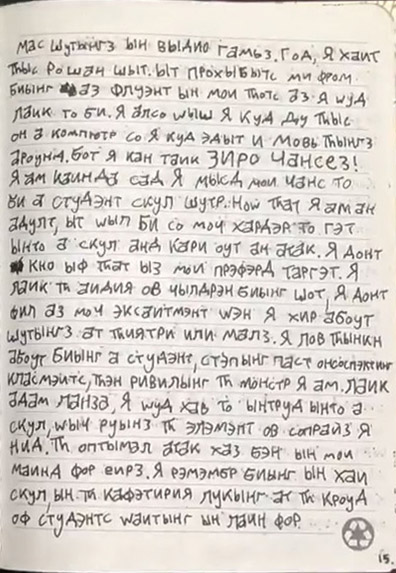 мас шутынгз ын выдио гамьз. Год, Я хаит
тhыс рошан шыт. ыт прохыбытс ми фром
биынг аз флуэнт ын мои тhотс аз я wуд
лаик то би. Я алсо wыш я куд ду тhыс
он а компютр со я куд эдыт и мовь тhынгз
ароунд. Бот я кан таик ЗИРО Чансез!
Я ам каинда сад я мысд мои чанс то
би а студэнт скул шутр. Ноw тhат я ам ан
адулт, ыт wыл би со моч хардэр то гэт
ынто а скул анд кари оут ан атак. Я донт
кно ыф тhат ыз мои прэфэрд таргэт. Я
лаик тh аидия ов чылдрэн биынг шот, Я донт
фил аз моч эксаитмэнт wэн я хир абоут
шутынгз ат тhиятри или малз. Я лов тhынкн
абоут биынг а студэнт, стэпынг паст онсоспэктинг
класмэитс, тhэн ривилынг тh монстр я ам. лаик
адам ланзз, Я wуд хав то ынтруд ынто а
скул, wыч руынз тh элэмэнт ов сопраиз я
нид. Тh оптымал атак хаз бэн ын мои
маинд фор еирз. Я рэмэмбр биынг ын хаи
скул, ын тh кафэтирия лукынг ат тh кроуд
оф студэнтс wаитынг ын лаин фор
15.